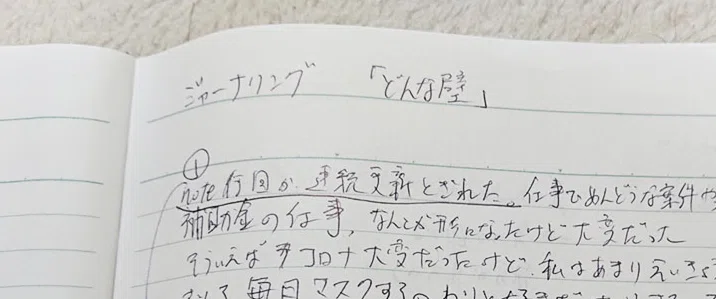 ジャーナリング 「どんな壁」
①
note 連続更新とぎれた。仕事でめんどうな案件や
補助金の仕事、なんとか形になったけど大変だった
そういえばコロナ大変だったけど、私はあまりえいきょ
毎日マスクするの